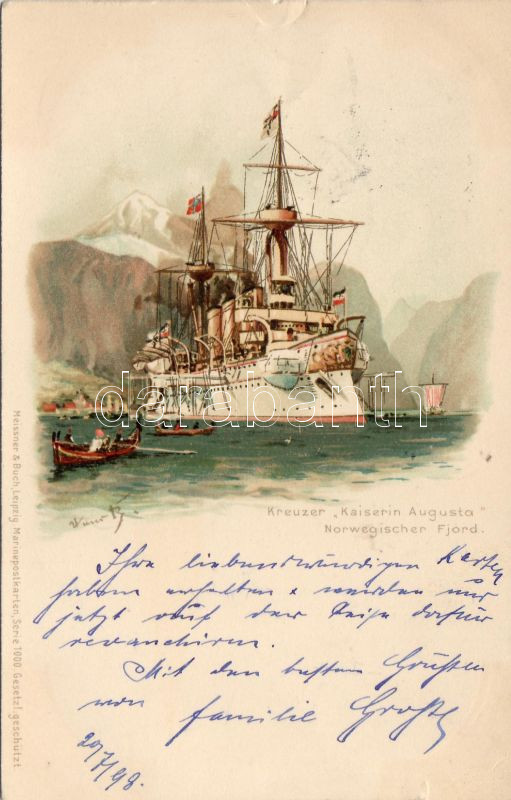 darabanth
Kreuzer „Kaiserin Augusta"
Norwegischer Fjord.
Meissner & Buch, Leipzig. Marinepostkarten, Serie 1000. Gesetzl. geschützt
Ihre liebenswürdigen Karten
haben erhalten & werden uns
jetzt auf der Reise dafür
revanchiren.
Mit den besten Grüssen
von Familie
20/7/98.